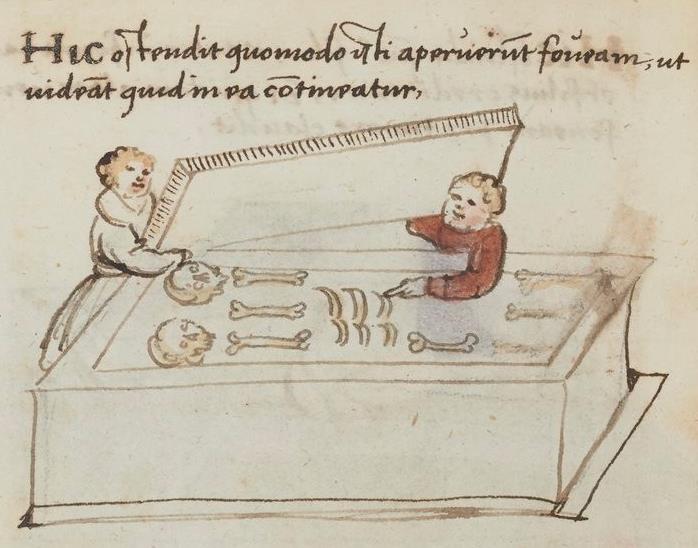 Hic ostendit quomodo isti aperuerūt foūeam, ut
uideāt quid in ea cōtineatur,